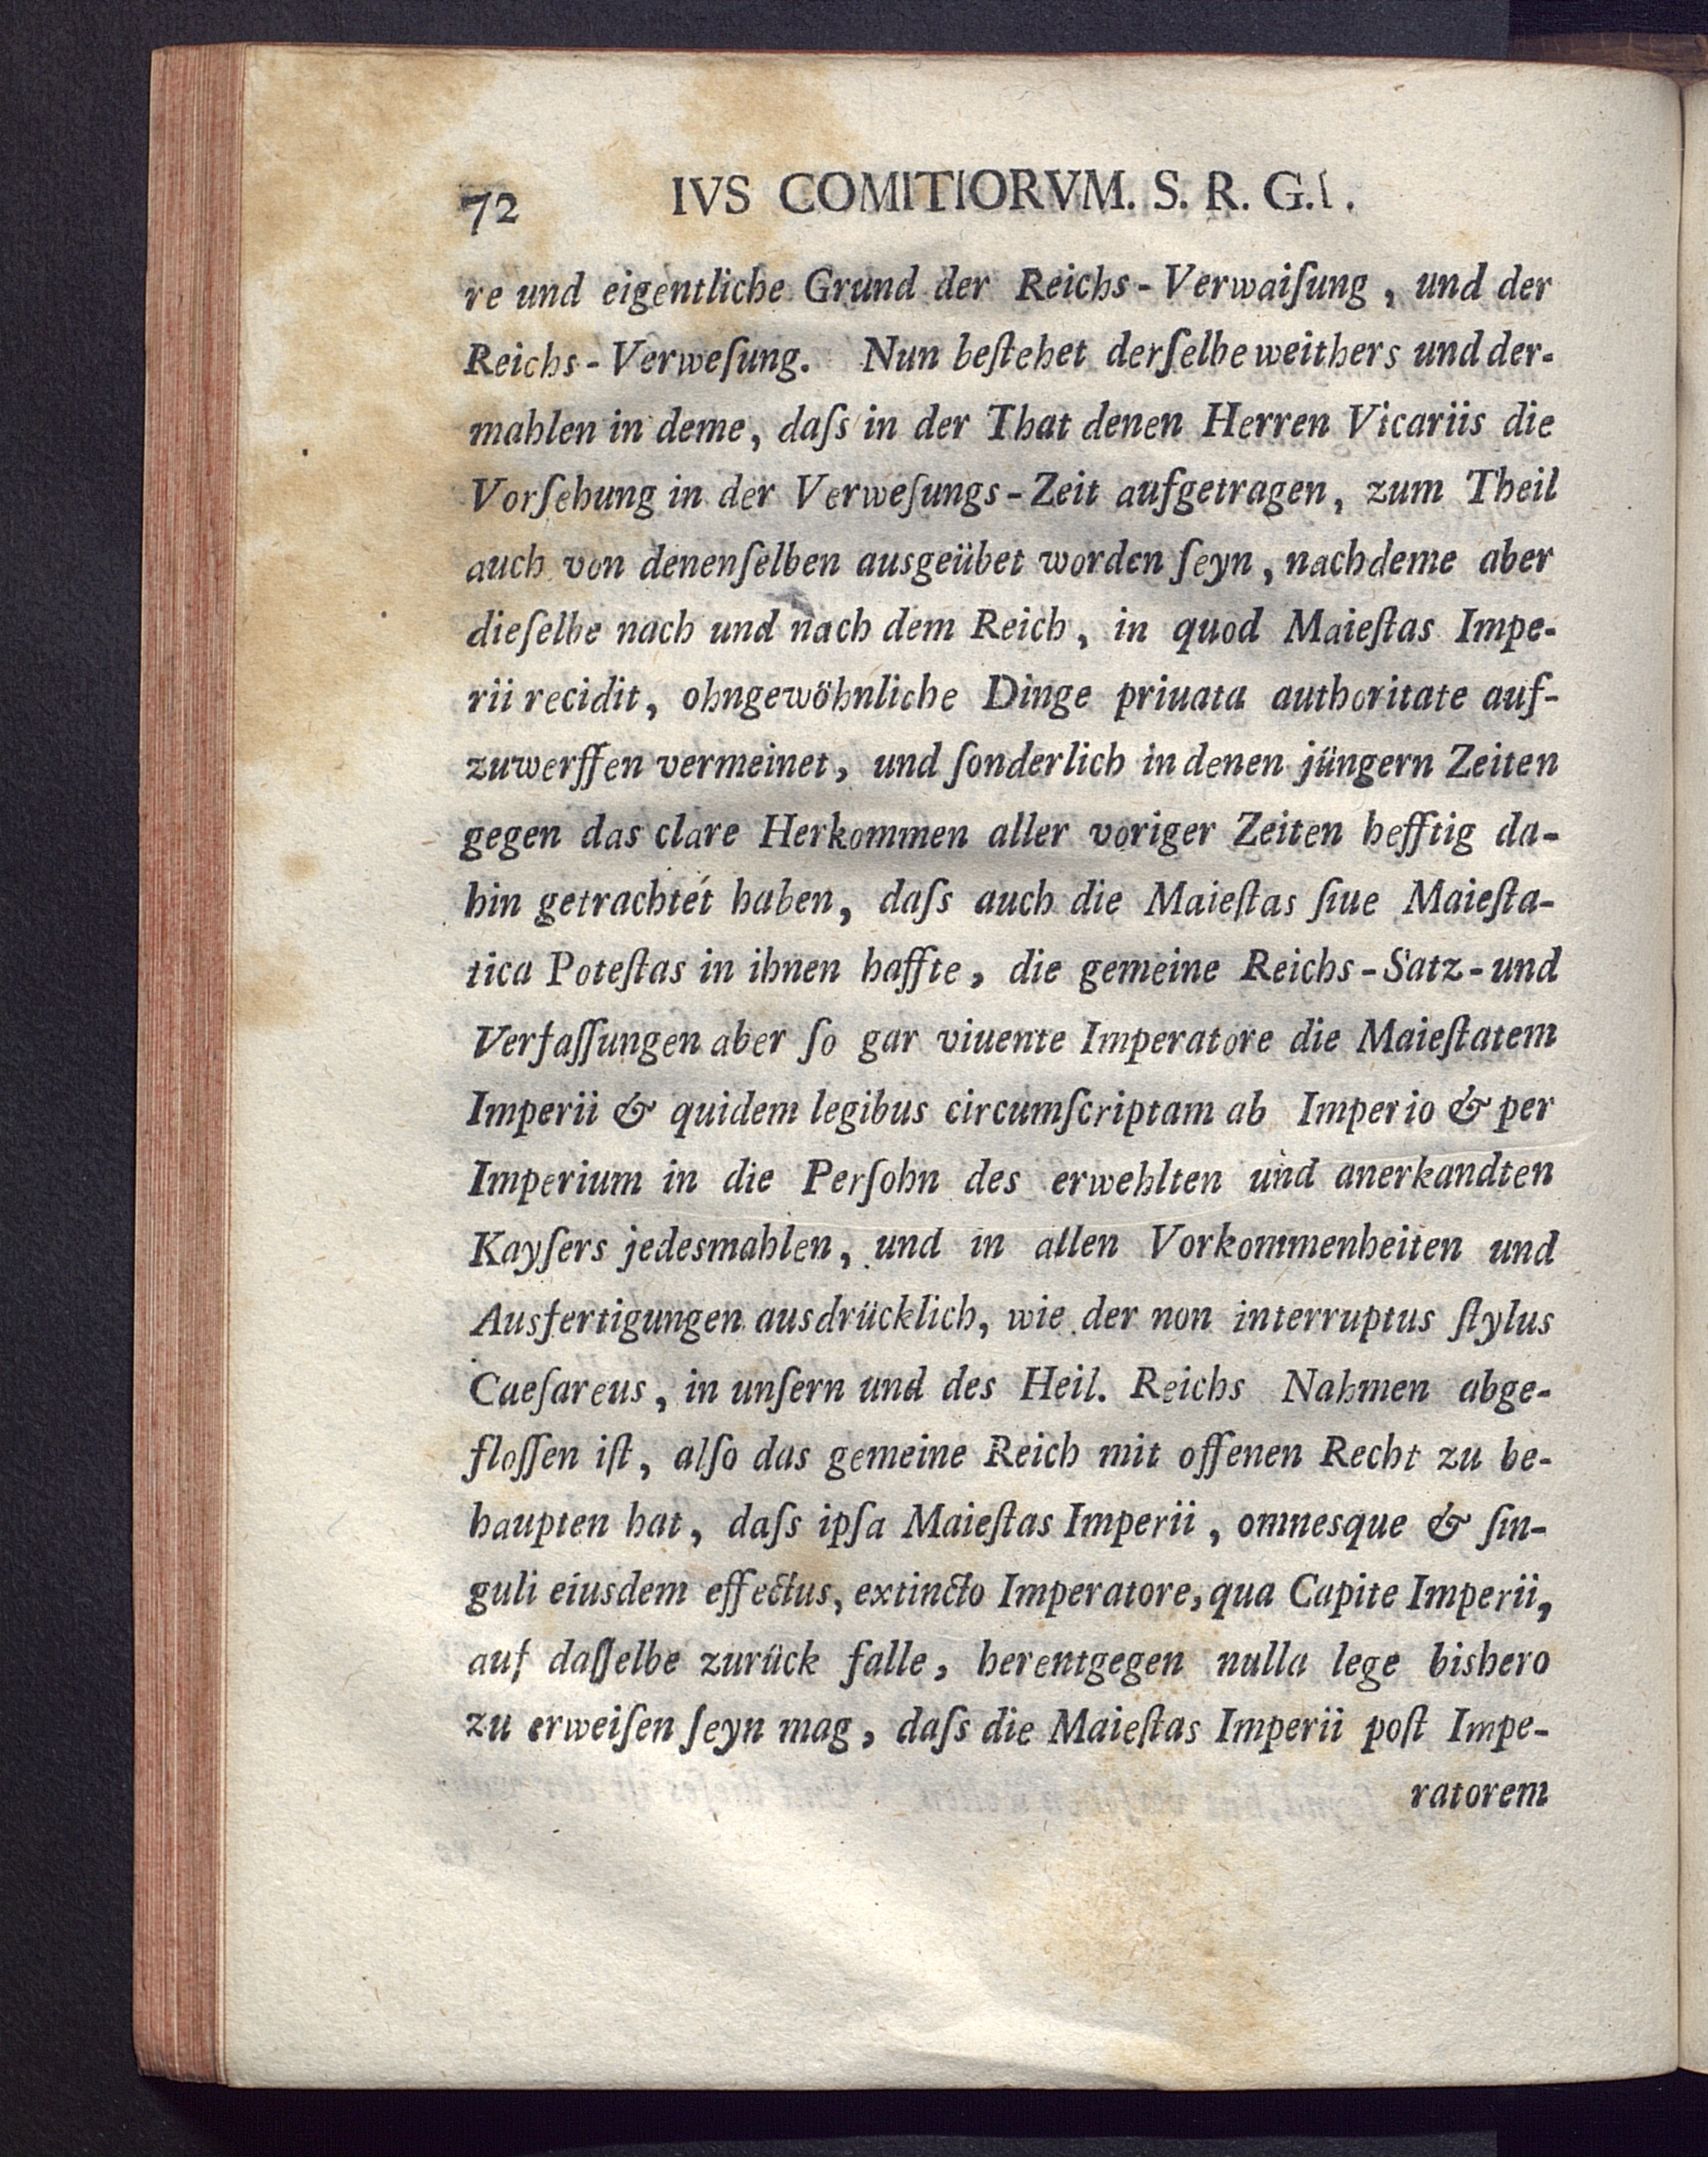 72 IVS COMITIORVM. S. R. G. I.
re und eigentliche Grund der Reichs-Verwaiſung, und der
Reichs-Verweſung. Nun beſtehet derſelbe weithers und der-
mahlen in deme, daſs in der That denen Herren Vicariis die
Vorſehung in der Verweſungs-Zeit aufgetragen, zum Theil
auch von denenſelben ausgeübet worden ſeyn, nachdeme aber
dieſelbe nach und nach dem Reich, in quod Maieſtas Impe-
rii recidit, ohngewöhnliche Dinge priuata authoritate auf-
zuwerffen vermeinet, und ſonderlich in denen jüngern Zeiten
gegen das clare Herkommen aller voriger Zeiten hefftig da-
hin getrachtet haben, daſs auch die Maieſtas ſiue Maieſta-
tica Poteſtas in ihnen haffte, die gemeine Reichs-Satz-und
Verfaſſungen aber ſo gar viuente Imperatore die Maieſtatem
Imperii & quidem legibus circumſcriptam ab Imperio & per
Imperium in die Perſohn des erwehlten und anerkandten
Kayſers jedesmahlen, und in allen Vorkommenheiten und
Ausfertigungen ausdrücklich, wie der non interruptus ſtylus
Caeſareus, in unſern und des Heil. Reichs Nahmen abge-
floſſen iſt, alſo das gemeine Reich mit offenen Recht zu be-
haupten hat, daſs ipſa Maieſtas Imperii, omnesque & ſin-
guli eiusdem effectus, extincto Imperatore, qua Capite Imperii,
auf daſſelbe zurück falle, herentgegen nulla lege bishero
zu erweiſen ſeyn mag, daſs die Maieſtas Imperii poſt Impe-
ratorem